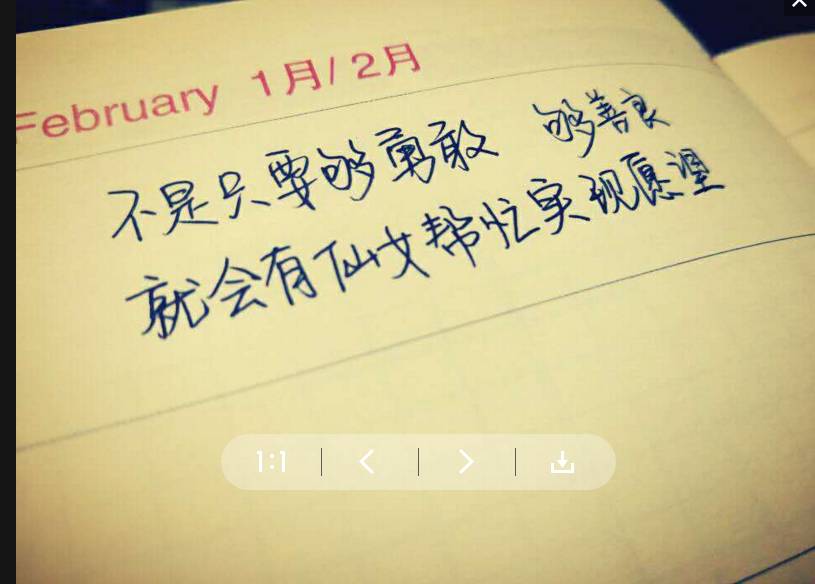 February 1月/2月
不是只要够勇敢 够善良
就会有仙女帮忙实现愿望
1:1